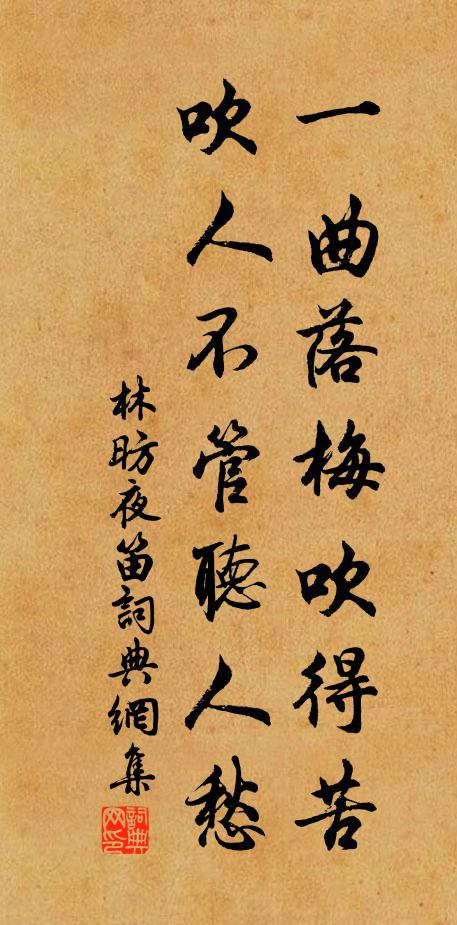 一曲落梅吹得苦
吹人不管聽人愁
林昉夜笛詞典網集
詞典网印